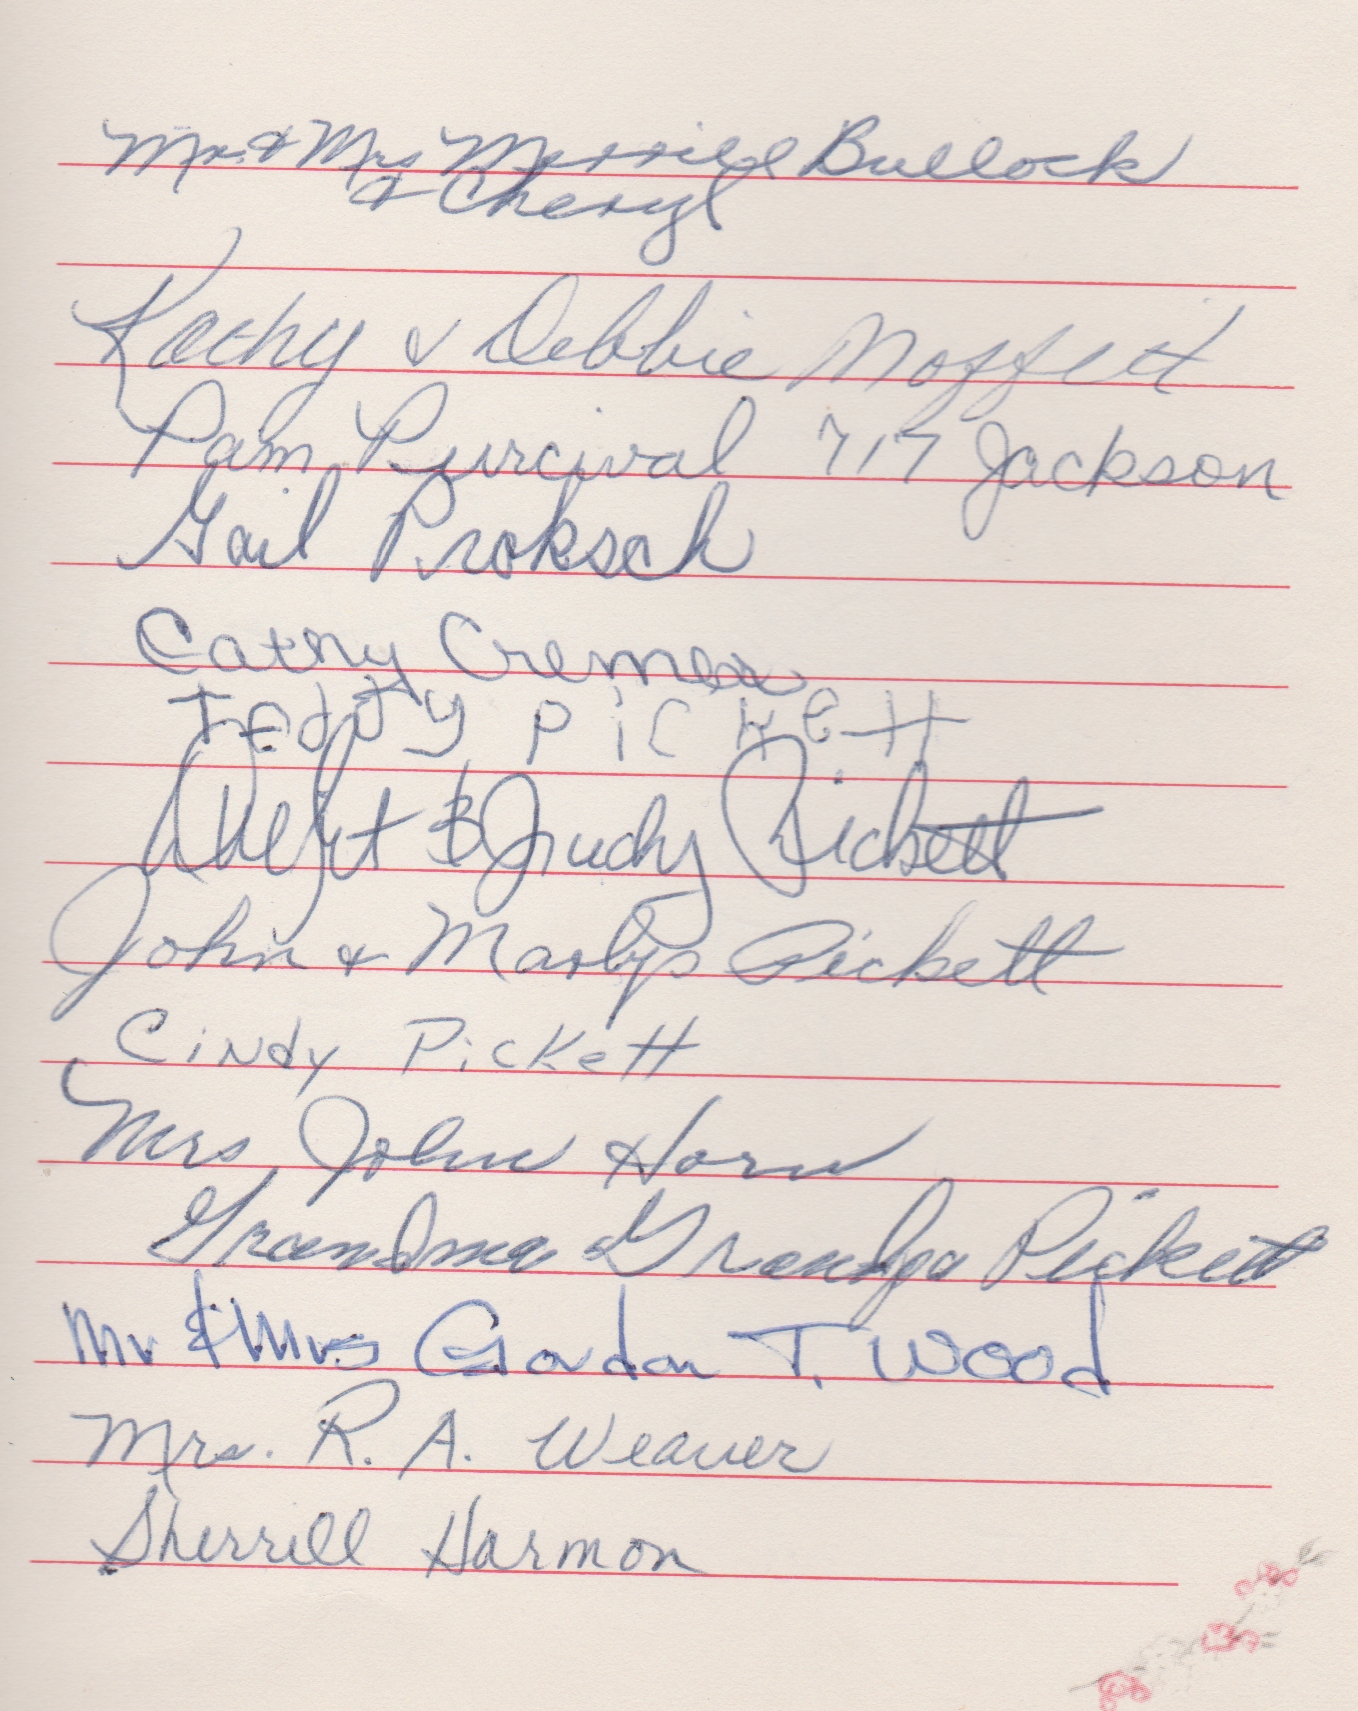 Mr. & Mrs Merrill Bullock
& Cheryl
Kathy & Debbie Moffett
Pam Purcival 717 Jackson
Gail Proksch
Cathy Cremer
Teddy Pickett
& Judy Pickett
John & Marlys Pickett
Cindy Pickett
Mrs John Horn
Grandma & Grandpa Pickett
Mr & Mrs Gordon T. Wood
Mrs. R. A. Weaver
Sherrill Harmon